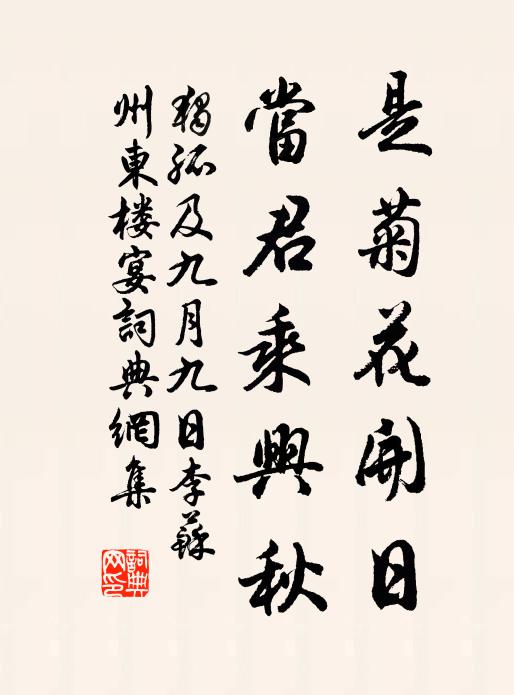 是菊花開日
當君乘興秋
獨孤及九月九日李蘇
州東楼宴詞典網集
詞典网印